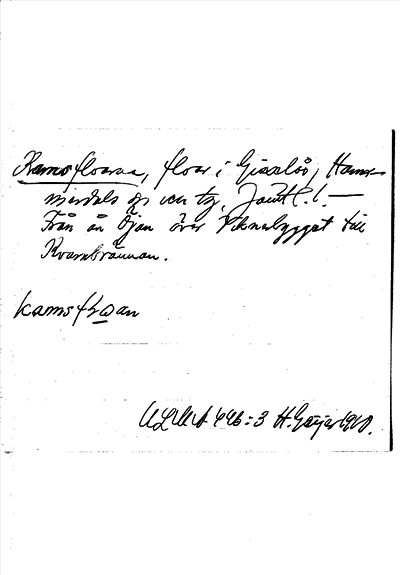 Ramsfloarna, floar i Gisselås, Hammer-
merdals sn och tg, Jämtl. l. —
Från ån Öjan över Viknabygget till
Kvarnbrännan.
kamsfloan
ULMA 446:3 H. Geijer 1910.